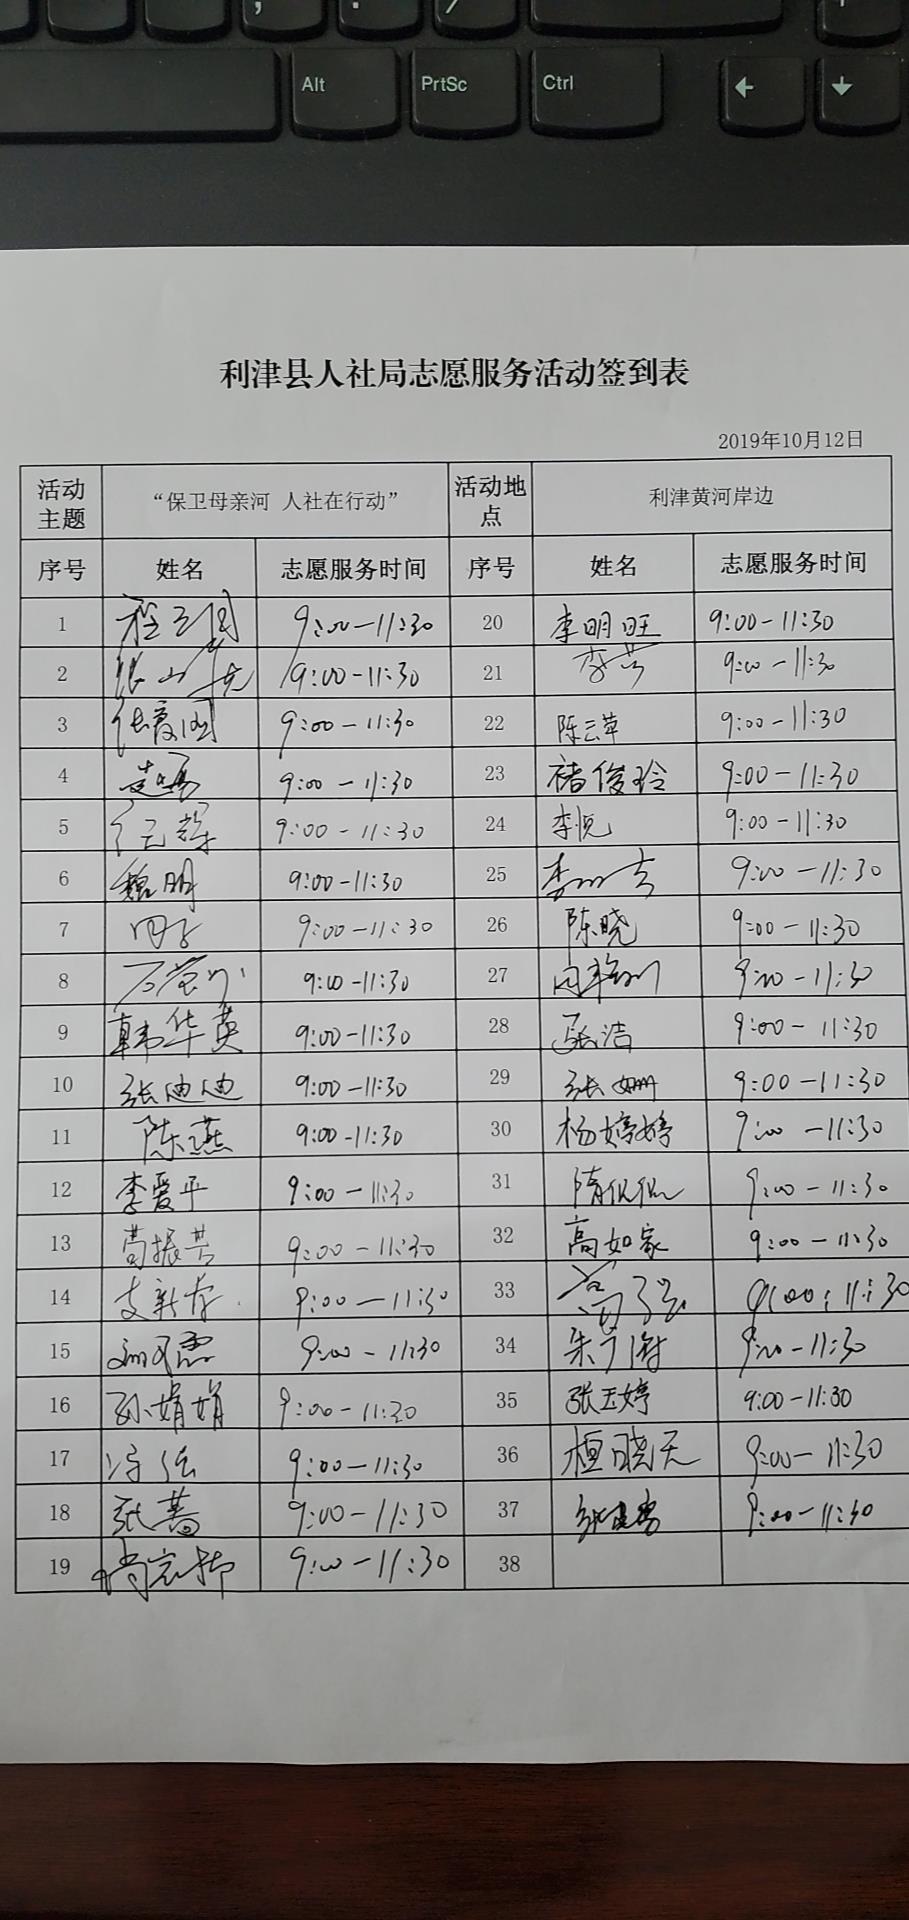 Alt PrtSc Ctrl
利津县人社局志愿服务活动签到表
2019年10月12日
活动主题 “保卫母亲河 人社在行动” 活动地点 利津黄河岸边
序号 姓名 志愿服务时间 序号 姓名 志愿服务时间
1 9:00-11:30 20 李明旺 9:00-11:30
2 9:00-11:30 21 9:00-11:30
3 9:00-11:30 22 陈云苹 9:00-11:30
4 9:00-11:30 23 褚俊玲 9:00-11:30
5 9:00-11:30 24 李悦 9:00-11:30
6 魏明 9:00-11:30 25 9:00-11:30
7 9:00-11:30 26 陈晓 9:00-11:30
8 9:00-11:30 27 9:00-11:30
9 韩华英 9:00-11:30 28 张洁 9:00-11:30
10 张迪迪 9:00-11:30 29 张姗 9:00-11:30
11 陈燕 9:00-11:30 30 杨婷婷 9:00-11:30
12 李爱平 9:00-11:30 31 隋侃侃 9:00-11:30
13 9:00-11:30 32 高如家 9:00-11:30
14 9:00-11:30 33 9:00-11:30
15 9:00-11:30 34 9:00-11:30
16 孙娟娟 9:00-11:30 35 张玉婷 9:00-11:30
17 9:00-11:30 36 9:00-11:30
18 张蔷 9:00-11:30 37 9:00-11:30
19 9:00-11:30 38